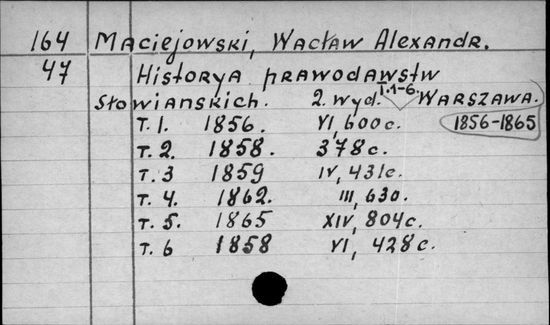 164 Maciejowski, Wacław Alexandr.
47 Historya prawodawstw
Słowianskich. 2. wyd. T. 1-6. Warszawa.
T. 1. 1856. VI, 600 c. 1856-1865
T. 2. 1858. 378 c.
T. 3 1859 IV, 431 c.
T. 4. 1862. III, 630.
T. 5. 1865 XIV, 804 c.
T. 6 1858 VI, 428 c.